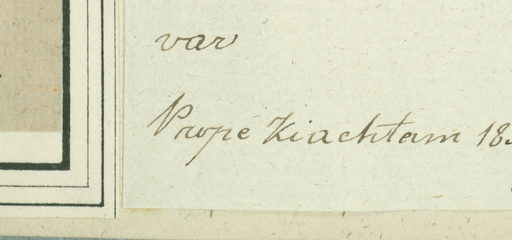 var
Prope Kiachtam 183